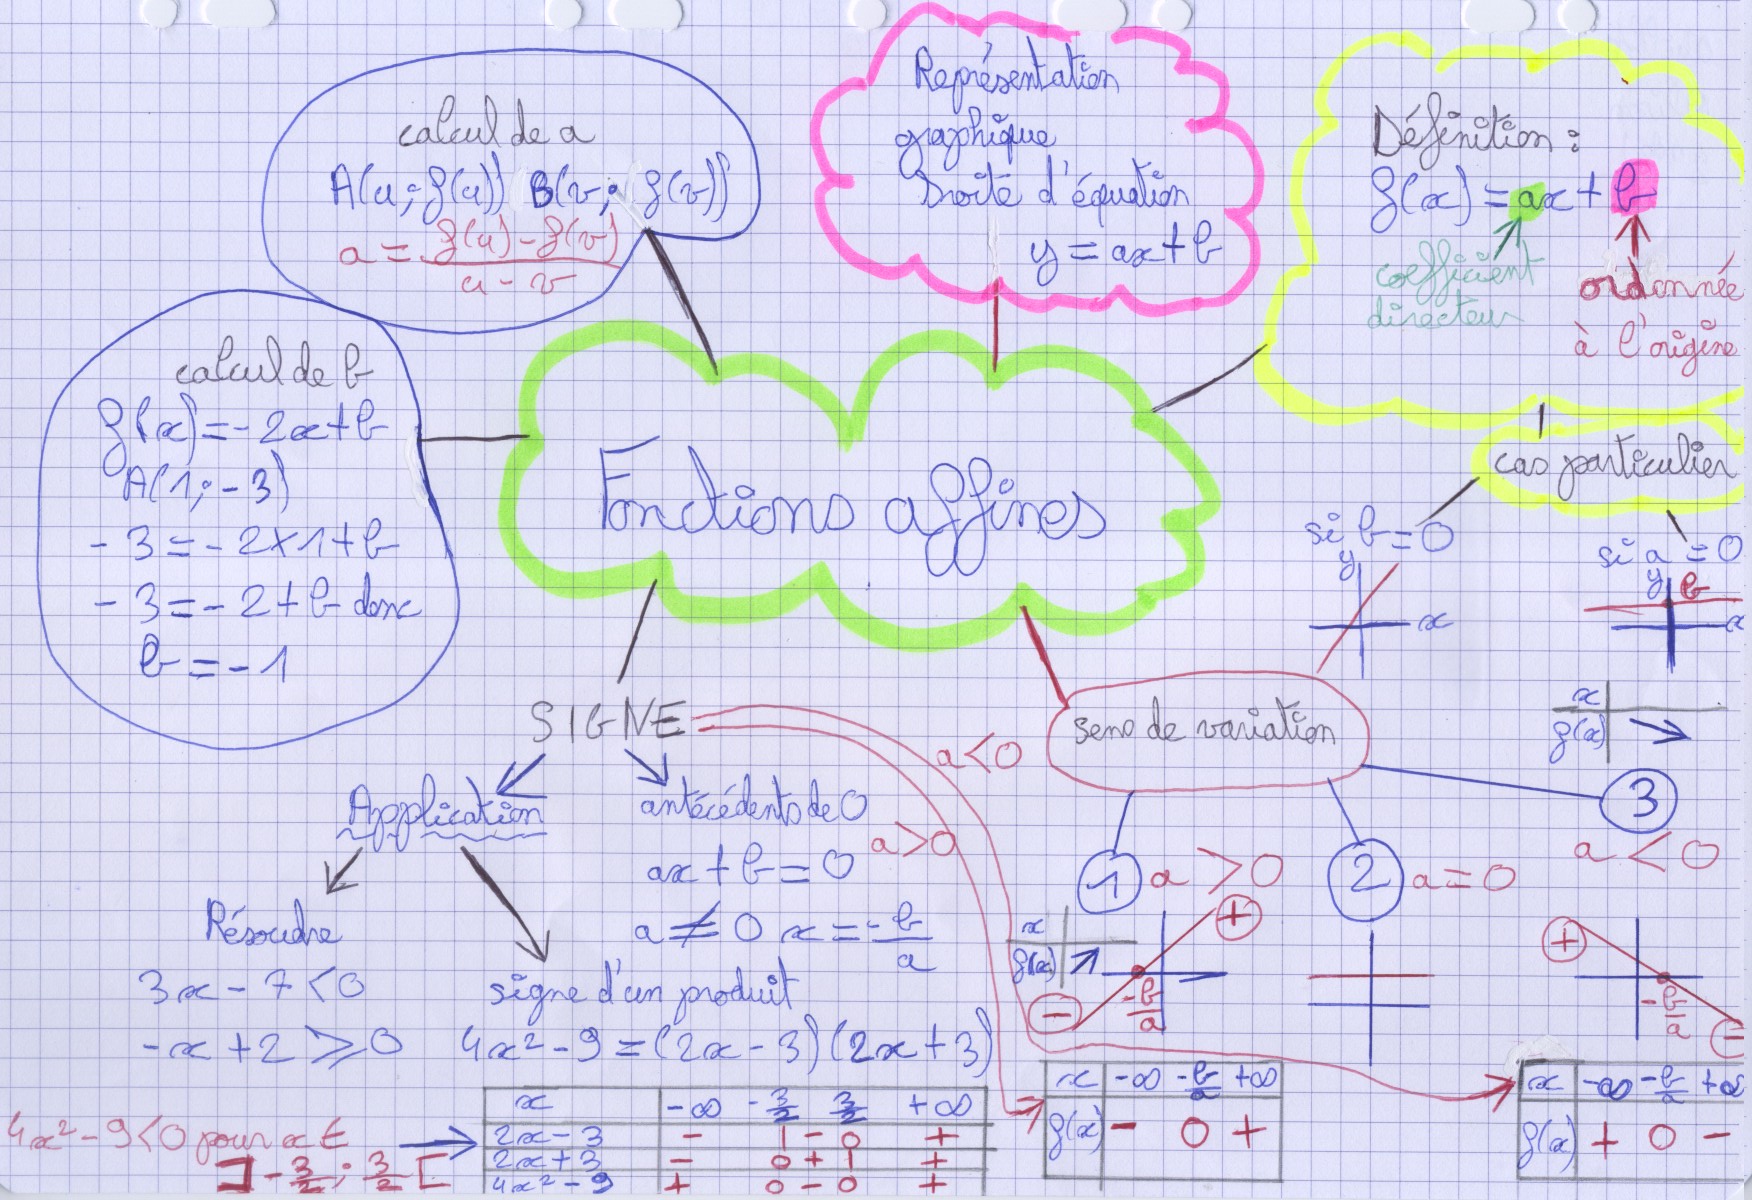 calcul de a
A(u ; f(u)) B(v ; f(v))
a = f(u) - f(v) / u - v
Représentation
graphique
Droite d'équation
y = ax + b
Définition :
f(x) = ax + b
coefficient
directeur
ordonnée
à l'origine
calcul de b
f(x) = -2x + b
A(1 ; -3)
-3 = -2 × 1 + b
-3 = -2 + b donc
b = -1
Fonctions affines
cas particulier
si b = 0
y
x
si a = 0
y b
x
SIGNE
a < 0
a > 0
Application
antécédents de 0
ax + b = 0
a ≠ 0 x = -b/a
Résoudre
3x - 7 < 0
-x + 2 ⩾ 0
signe d'un produit
4x² - 9 = (2x - 3)(2x + 3)
x -∞ -3/2 3/2 +∞
2x - 3 - | - 0 +
2x + 3 - 0 + | +
4x² - 9 + 0 - 0 +
4x² - 9 < 0 pour x ∈
]-3/2 ; 3/2[
sens de variation
1 a > 0
x
f(x) ↗
+
-
-b/a
2 a = 0
x
f(x) ↘
3
a < 0
+
-b/a
-
x -∞ -b/a +∞
f(x) - 0 +
x -∞ -b/a +∞
f(x) + 0 -